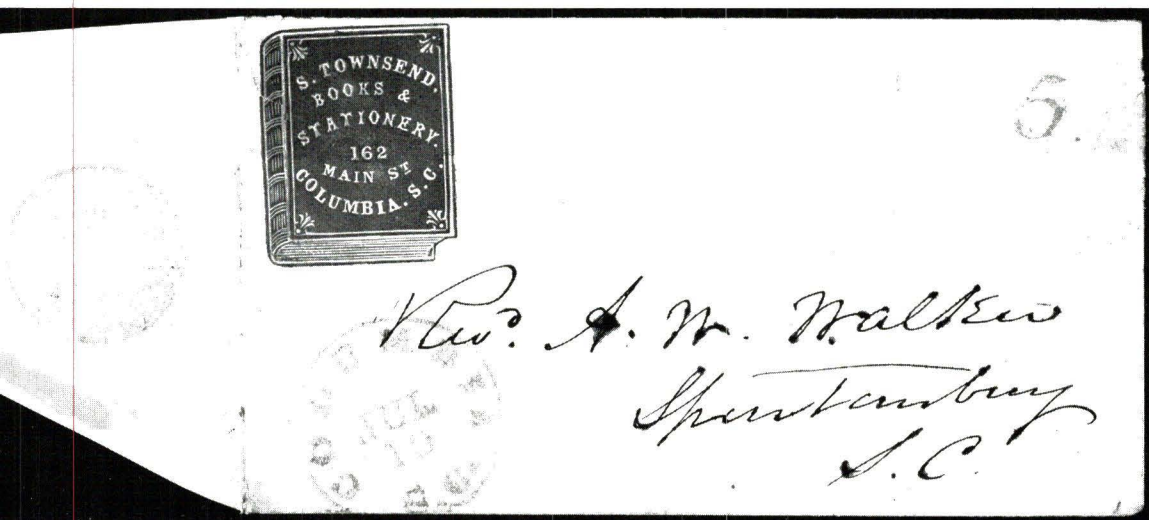 S. TOWNSEND.
BOOKS &
STATIONERY.
162
MAIN ST
COLUMBIA. S.C.
5
Revd. A. W. Walker
Spartanburg
S. C.
JUL